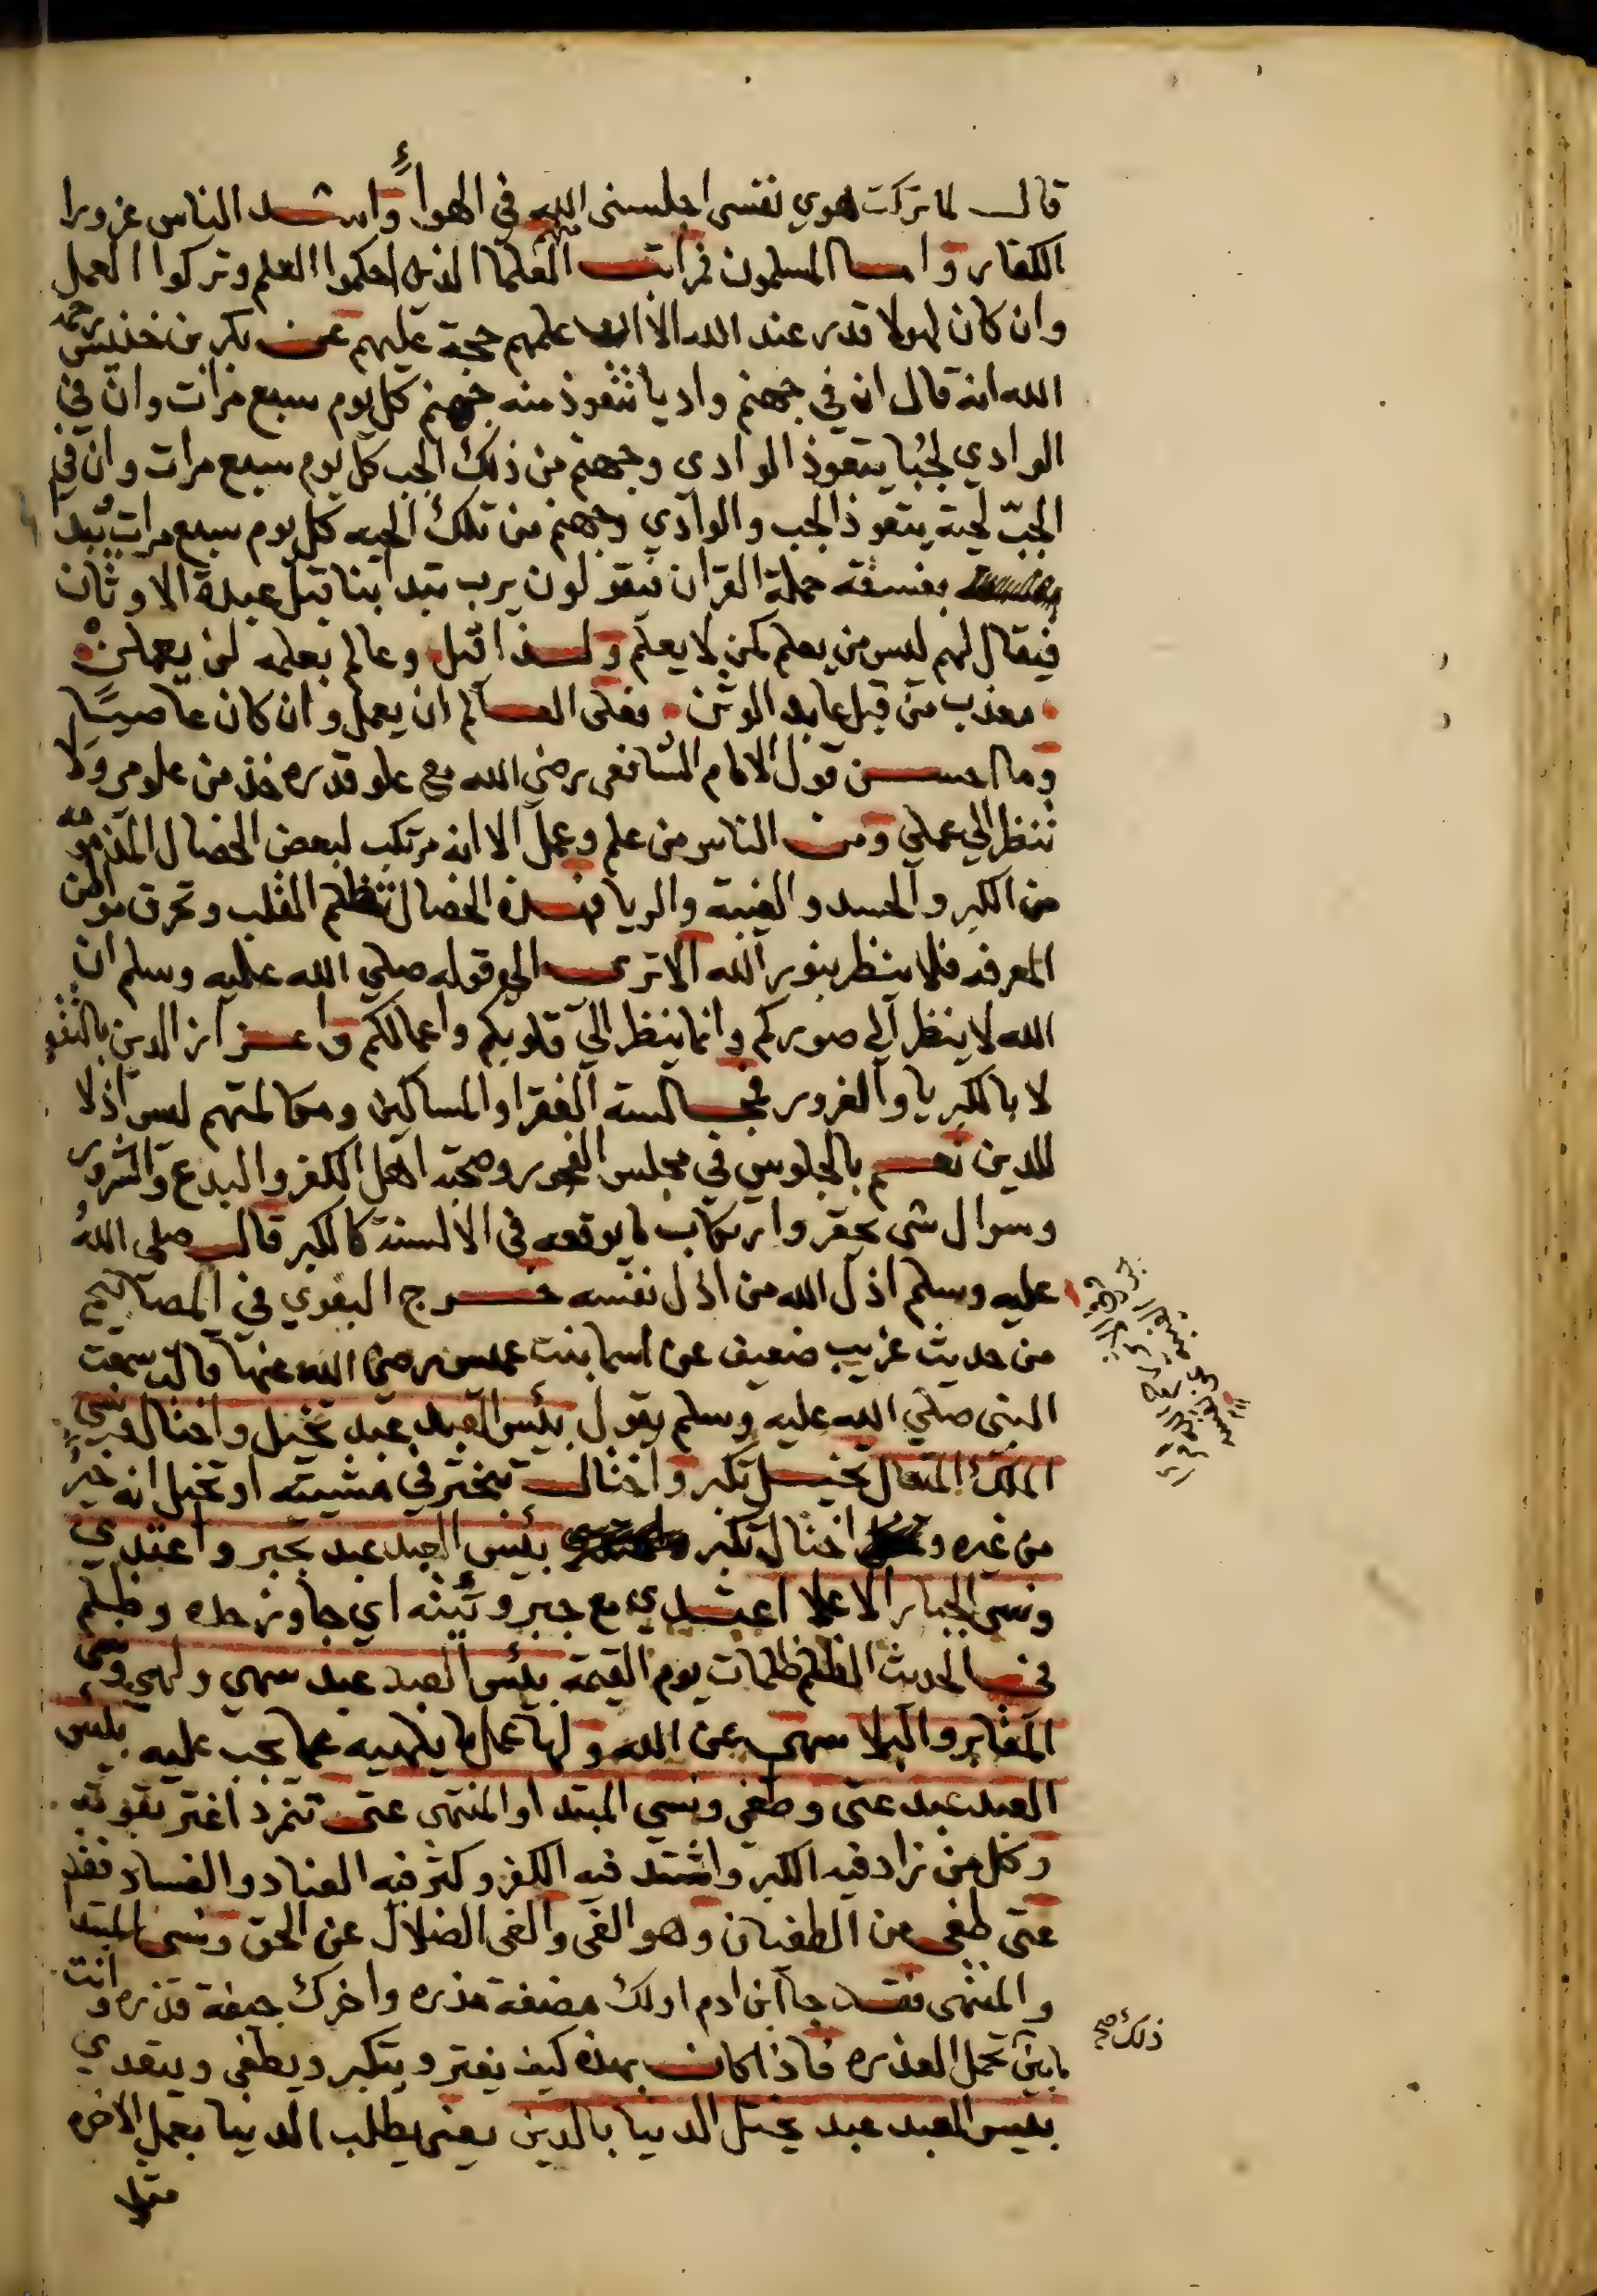 قال لما تركت هوي نفسي اجلسني الله في الهواءِ واشد الناس غرورا
الكفار واما المسلمون فمرات منهم العلما الذين احكموا العلم وتركوا العمل
وان كان لهولا قدر عند الله الا ان علمهم حجة عليهم عن بكر بن خنيس رحمه
الله انه قال ان في جهنم واديا تتعوذ منه جهنم كل يوم سبع مرات وان في
الوادي لجُبا يتعوذ الوادي وجهنم من ذلك الجب كل يوم سبع مرات وان في
الجبّ لحية يتعوذ الجب والوادي وجهنم من تلك الحيه كل يوم سبع مرات يُبدا
بفسقة حملة القران فيقولون يرب بدا بنا قبل عبدة الاوثان
فيقال لهم ليس من يعلم كمن لا يعلم ولـذا قيل وعالم بعلمه لن يعملن
معذب من قبل عابد الوثن فعلى العالم ان يعمل وان كان عاصيًا
وما احسن قول الامام الشافعي رضي الله مع علو قدره خذ من علومي ولا
تنظر الي عملي ومن الناس من علم وعمل الا انه مرتكب لبعض الخصال المذمومه
من الكبر والحسد والغيبة والريا فهذه الخصال تظلم القلب وتحرق موطن
المعرفه فلا ينظر بنور الله الا ترى الي قوله صلي الله عليه وسلم ان
الله لا ينظر الي صوركم وانما ينظر الي قلوبكم واعمالكم واعزاز الدين بالتقو
لا بالكبريا والغرور فمجالسة الفقرا والمساكين ومكالمتهم ليس اذلا
للدين نعم بالجلوس في مجلس الفجور وصحبة اهل الكفر والبدع والشرور
وسوال شي محقر وارتكاب ما يوقعه في الالسنة كالكبر قال صلى الله
عليه وسلم اذل الله من اذل نفسه خرج البغوي في المصابيح
من حديث غريب ضعيف عن اسما بنت عميس رضي الله عنها قالت سمعت
النبي صلي الله عليه وسلم يقول بئس العبد عبد تخيل واختال ونسي
الملك المتعال تخيل تكبر واختال تبختر في مشيته او تخيل انه خيرٌ
من غيره و اختال تكبر بئس العبد عبد تجبر واعتدي
ونسي الجبار الاعلا اعتدي مع جبروتيته اي جاوز حده وظلم
فـي الحديث الظلم ظلمات يوم القيمة بئس العبد عبد سهي ولهي ونسي
المقابر والبلا سهى عن الله ولها عمل ما يلهيه عما يجب عليه بئس
العبد عبد عتى وطغي ونسي المبتدا والمنتهى عتى تمرد اغتر بقوته
وكل من زاد فيه الكبر واشتد فيه الكفر وكثر فيه العناد والفساد فقد
عتى طغى من الطغيان وهو الغي والغي الضلال عن الحق ونسى المبتدا
والمنتهى فقد جا ابن ادم اولك مضغة مذره واخرك جيفة قذره وانت
ما بين تحمل العذره فاذا كان بهذه كيف يغتر ويتكبر ويطغى ويتعدي
ذلك صح
بئيس العبد عبد يختل الدنيا بالدين يعني يطلب الدنيا بعمل الاخره
مثلا